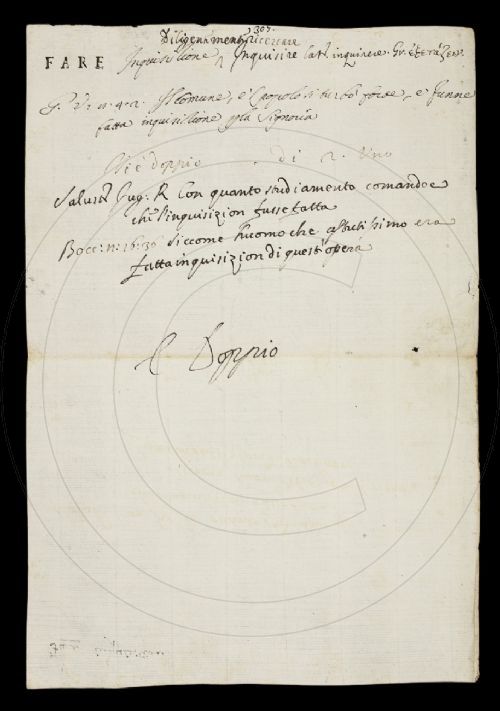 307.
Diligentemente ricercare
FARE Inquisitione Inquisire Lat. inquirere. Gr.
G. V. Il Comune, e Popolo si turbò forte, e funne
fatta inquisitione p la Signoria
è doppio di Uno
Salust. Giug. R. Con quanto studiamento comandoe
che l'inquisizion fusse fatta
Bocc. n. 16. 30 Siccome huomo che astutissimo era
fatta inquisizion di quest'opera
È Doppio